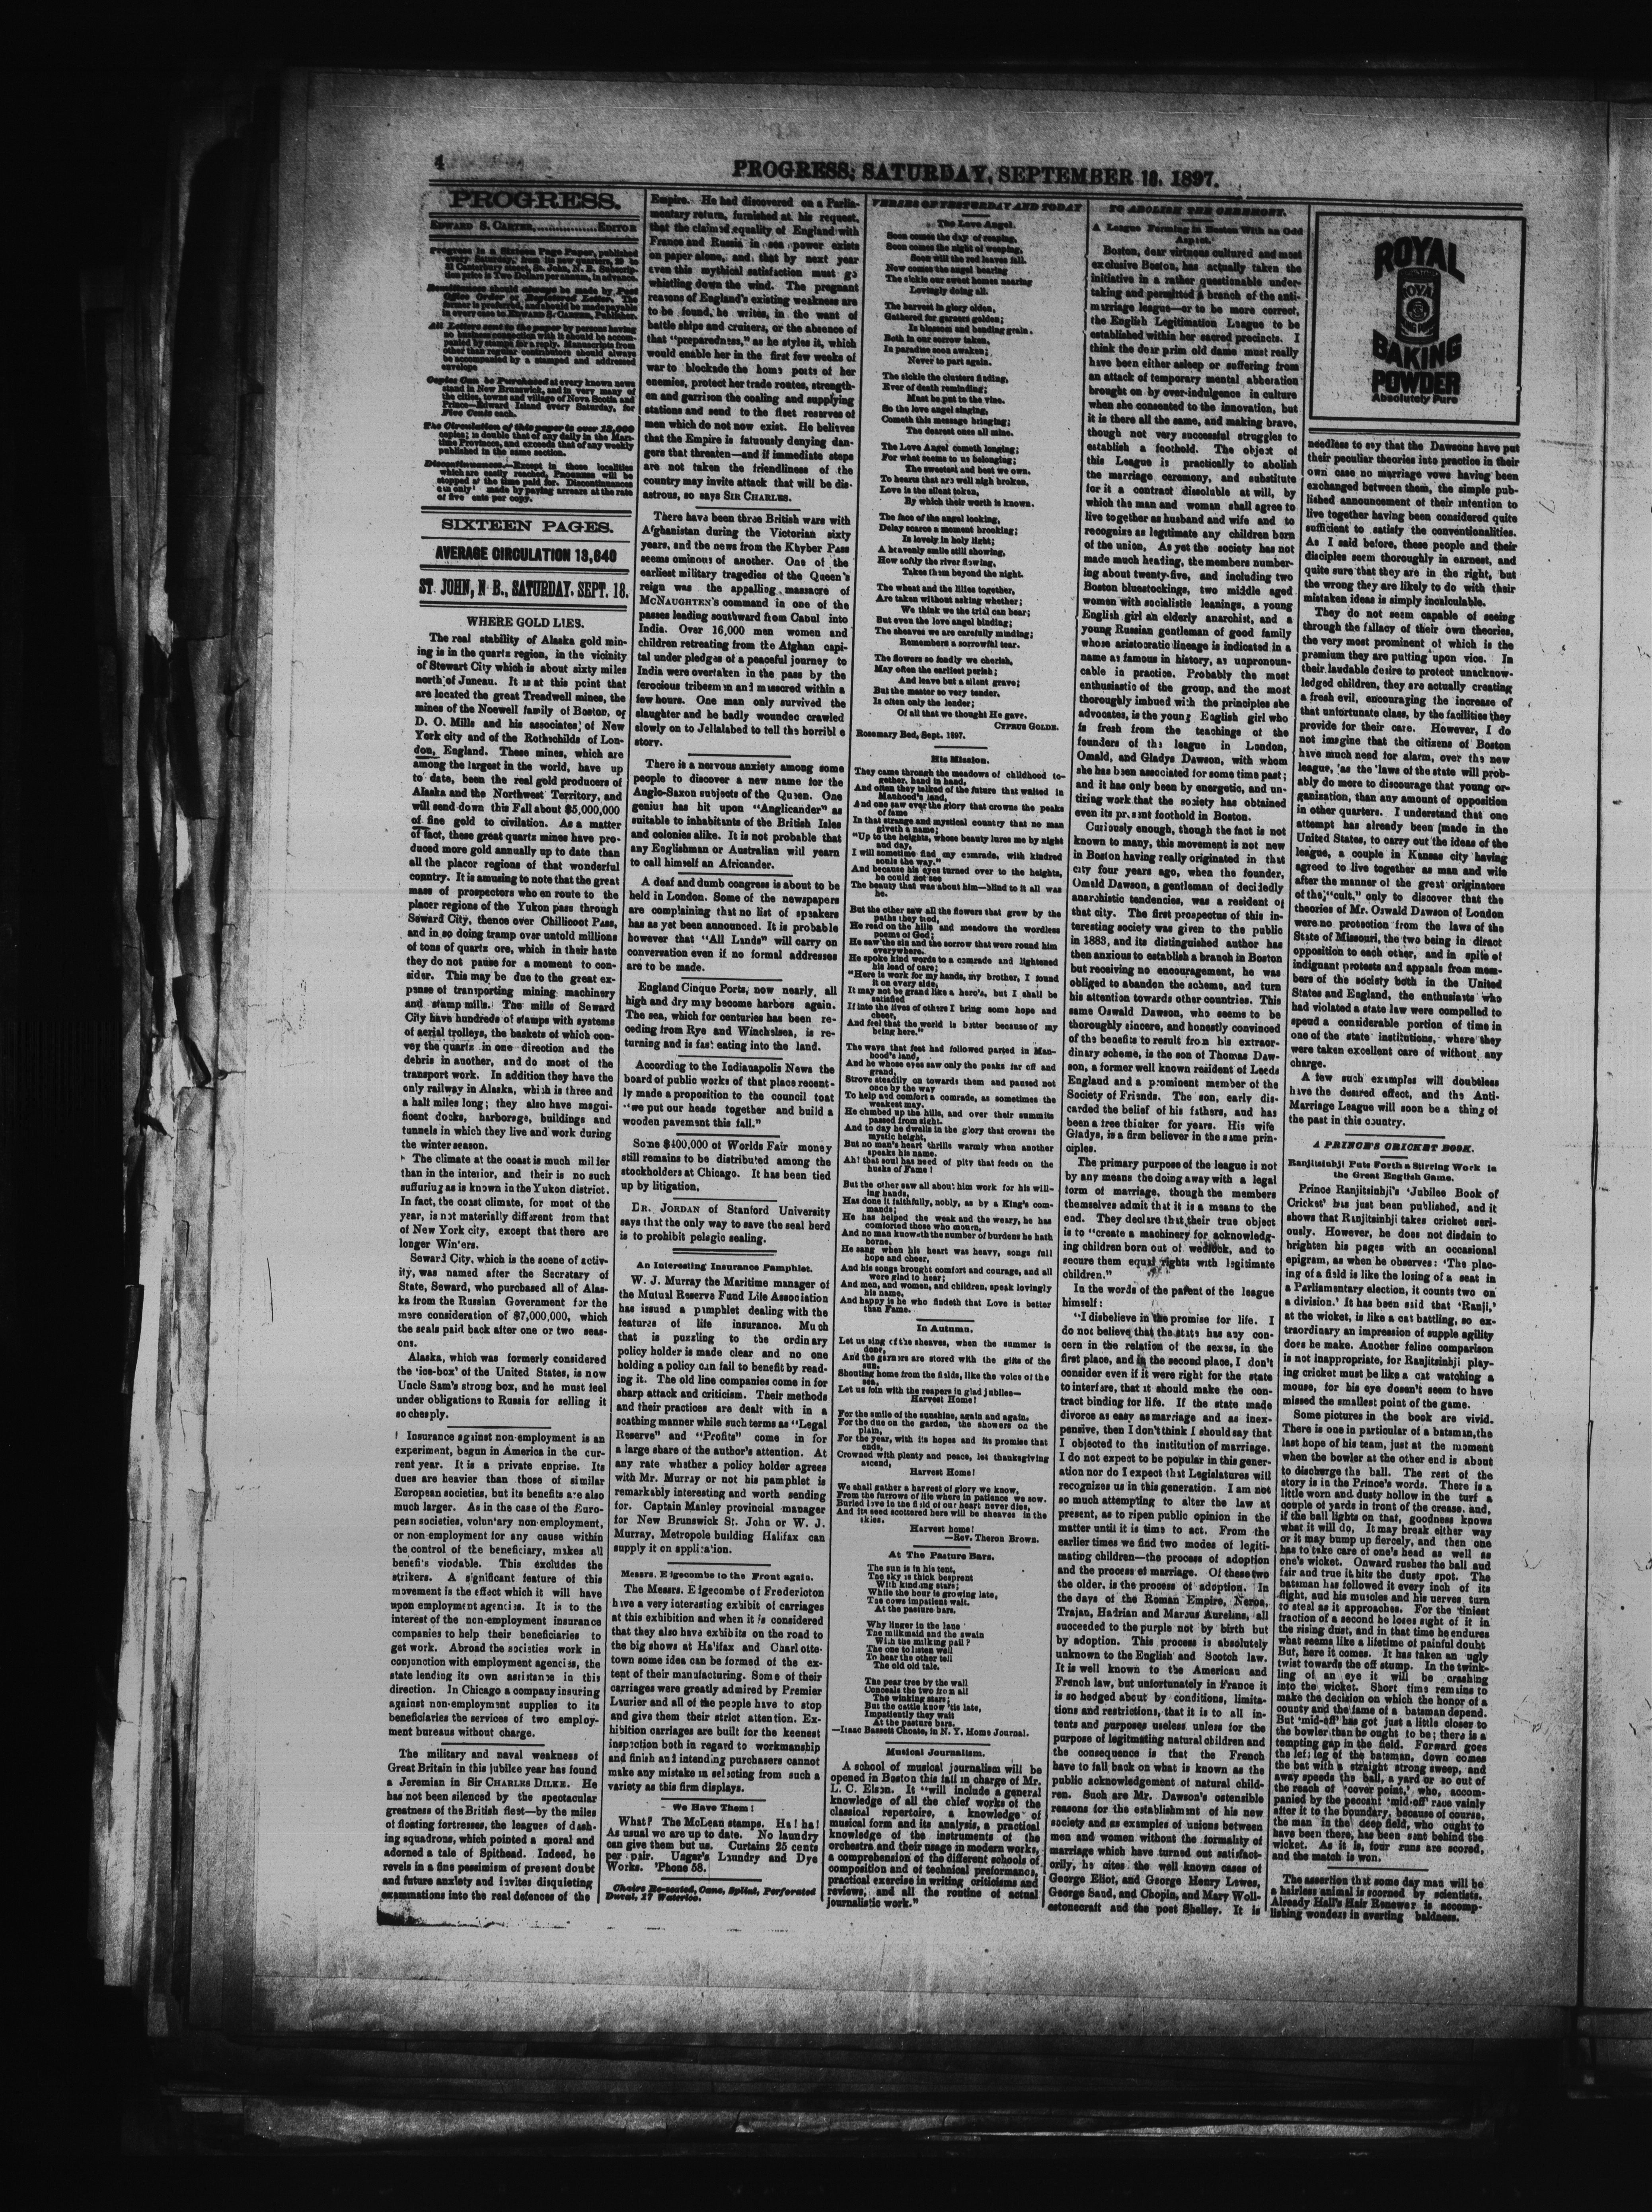 4
PROGRESS, SATURDAY, SEPTEMBER 18, 1897.
PROGRESS.
EDWARD S. CARTER,................EDITOR
Progress is a Sixteen Page Paper, published
every Saturday, from its new quarters, 29 to
31 Canterbury street, St. John, N. B. Subscrip-
tion price is Two Dollars per annum, in advance.
Remittances should always be made by Post
Office Order or Registered Letter. The
former is preferred, and should be made payable
in every case to EDWARD S. CARTER, Publisher.
All Letters sent to the paper by persons having
no business connection with it should be accom-
panied by stamps for a reply. Manuscripts from
other than regular contributors should always
be accompanied by a stamped and addressed
envelope
Copies Can be Purchased at every known news
stand in New Brunswick, and in very many of
the cities, towns and village of Nova Scotia and
Prince—Edward Island every Saturday, for
Five Cents each.
The Circulation of this paper is over 13,000
copies; is double that of any daily in the Mari-
time Provinces, and exceeds that of any weekly
published in the same section.
Discontinuances.—Except in those localities
which are easily reached, PROGRESS will be
stopped at the time paid for. Discontinuances
can only be made by paying arrears at the rate
of five cents per copy.
SIXTEEN PAGES.
AVERAGE CIRCULATION 13,640
ST. JOHN, N. B., SATURDAY, SEPT. 18.
WHERE GOLD LIES.
The real stability of Alaska gold min-
ing is in the quartz region, in the vicinity
of Stewart City which is about sixty miles
north of Juneau. It is at this point that
are located the great Treadwell mines, the
mines of the Noewell family of Boston, of
D. O. Mills and his associates, of New
York city and of the Rothschilds of Lon-
don, England. These mines, which are
among the largest in the world, have up
to date, been the real gold producers of
Alaska and the Northwest Territory, and
will send down this Fall about $5,000,000
of fine gold to civilation. As a matter
of fact, these great quartz mines have pro-
duced more gold annually up to date than
all the placor regions of that wonderful
country. It is amusing to note that the great
mass of prospectors who en route to the
placer regions of the Yukon pass through
Seward City, thence over Chillicoot Pass,
and in so doing tramp over untold millions
of tons of quartz ore, which in their haste
they do not pause for a moment to con-
sider. This may be due to the great ex-
pense of transporting mining machinery
and stamp mills. The mills of Seward
City have hundreds of stamps with systems
of aerial trolleys, the baskets of which con-
vey the quartz in one direction and the
debris in another, and do most of the
transport work. In addition they have the
only railway in Alaska, which is three and
a half miles long; they also have magni-
ficent docks, harborage, buildings and
tunnels in which they live and work during
the winter season.
The climate at the coast is much milder
than in the interior, and their is no such
suffering as is known in the Yukon district.
In fact, the coast climate, for most of the
year, is not materially different from that
of New York city, except that there are
longer Winters.
Seward City, which is the scene of activ-
ity, was named after the Secretary of
State, Seward, who purchased all of Alas-
ka from the Russian Government for the
mere consideration of $7,000,000, which
the seals paid back after one or two seas-
ons.
Alaska, which was formerly considered
the 'ice-box' of the United States, is now
Uncle Sam's strong box, and he must feel
under obligations to Russia for selling it
so cheaply.
Insurance against non-employment is an
experiment, begun in America in the cur-
rent year. It is a private enprise. Its
dues are heavier than those of similar
European societies, but its benefits are also
much larger. As in the case of the Euro-
pean societies, voluntary non-employment,
or non-employment for any cause within
the control of the beneficiary, makes all
benefits viodable. This excludes the
strikers. A significant feature of this
movement is the effect which it will have
upon employment agencies. It is to the
interest of the non-employment insurance
companies to help their beneficiaries to
get work. Abroad the societies work in
conjunction with employment agencies, the
state lending its own assistance in this
direction. In Chicago a company insuring
against non-employment supplies to its
beneficiaries the services of two employ-
ment bureaus without charge.
The military and naval weakness of
Great Britain in this jubilee year has found
a Jeremian in Sir CHARLES DILKE. He
has not been silenced by the spectacular
greatness of the British fleet—by the miles
of floating fortresses, the leagues of dash-
ing squadrons, which pointed a moral and
adorned a tale of Spithead. Indeed, he
revels in a fine pessimism of present doubt
and future anxiety and invites disquieting
examinations into the real defences of the
Empire. He had discovered on a Parlia-
mentary return, furnished at his request,
that the claimed equality of England with
France and Russia in sea power exists
on paper alone, and that by next year
even this mythical satisfaction must go
whistling down the wind. The pregnant
reasons of England's existing weakness are
to be found, he writes, in the want of
battle ships and cruisers, or the absence of
that "preparedness," as he styles it, which
would enable her in the first few weeks of
war to blockade the home ports of her
enemies, protect her trade routes, strength-
en and garrison the coaling and supplying
stations and send to the fleet reserves of
men which do not now exist. He believes
that the Empire is fatuously denying dan-
gers that threaten—and if immediate steps
are not taken the friendliness of the
country may invite attack that will be dis-
astrous, so says SIR CHARLES.
There have been three British wars with
Afghanistan during the Victorian sixty
years, and the news from the Khyber Pass
seems ominous of another. One of the
earliest military tragedies of the Queen's
reign was the appalling massacre of
MCNAUGHTEN'S command in one of the
passes leading southward from Cabul into
India. Over 16,000 men women and
children retreating from the Afghan capi-
tal under pledges of a peaceful journey to
India were overtaken in the pass by the
ferocious tribesmen and massacred within a
few hours. One man only survived the
slaughter and he badly wounded crawled
slowly on to Jellalabed to tell the horrible
story.
There is a nervous anxiety among some
people to discover a new name for the
Anglo-Saxon subjects of the Queen. One
genius has hit upon "Anglicander" as
suitable to inhabitants of the British Isles
and colonies alike. It is not probable that
any Englishman or Australian will yearn
to call himself an Africander.
A deaf and dumb congress is about to be
held in London. Some of the newspapers
are complaining that no list of speakers
has as yet been announced. It is probable
however that "All Lands" will carry on
conversation even if no formal addresses
are to be made.
England Cinque Ports, now nearly all
high and dry may become harbors again.
The sea, which for centuries has been re-
ceding from Rye and Winchelsea, is re-
turning and is fast eating into the land.
According to the Indianapolis News the
board of public works of that place recent-
ly made a proposition to the council toat
"we put our heads together and build a
wooden pavement this fall."
Some $400,000 of Worlds Fair money
still remains to be distributed among the
stockholders at Chicago. It has been tied
up by litigation.
DR. JORDAN of Stanford University
says that the only way to save the seal herd
is to prohibit pelagic sealing.
An Interesting Insurance Pamphlet.
W. J. Murray the Maritime manager of
the Mutual Reserve Fund Life Association
has issued a pamphlet dealing with the
features of life insurance. Much
that is puzzling to the ordinary
policy holder is made clear and no one
holding a policy can fail to benefit by read-
ing it. The old line companies come in for
sharp attack and criticism. Their methods
and their practices are dealt with in a
scathing manner while such terms as "Legal
Reserve" and "Profits" come in for
a large share of the author's attention. At
any rate whether a policy holder agrees
with Mr. Murray or not his pamphlet is
remarkably interesting and worth sending
for. Captain Manley provincial manager
for New Brunswick St. John or W. J.
Murray, Metropole building Halifax can
supply it on application.
Messrs. Edgecombe to the Front again.
The Messrs. Edgecombe of Fredericton
have a very interesting exhibit of carriages
at this exhibition and when it is considered
that they also have exhibits on the road to
the big shows at Halifax and Charlotte-
town some idea can be formed of the ex-
tent of their manufacturing. Some of their
carriages were greatly admired by Premier
Laurier and all of the people have to stop
and give them their strict attention. Ex-
hibition carriages are built for the keenest
inspection both in regard to workmanship
and finish and intending purchasers cannot
make any mistake in selecting from such a
variety as this firm displays.
We Have Them!
What? The McLean stamps. Ha! ha!
As usual we are up to date. No laundry
can give them but us. Curtains 25 cents
per pair. Ungar's Laundry and Dye
Works. 'Phone 58.
Chairs Re-seated, Cane, Splint, Perforated
Duval, 17 Waterloo.
VERSES OF YESTERDAY AND TODAY
The Love Angel.
Soon comes the day of reaping,
Soon comes the night of weeping,
Soon will the red leaves fall.
Now comes the angel bearing
The sickle our sweet homes nearing
Lovingly doing all.
The harvest in glory olden,
Gathered for garners golden;
In blossom and bending grain.
Both in our sorrow taken,
In paradise soon awaken;
Never to part again.
The sickle the clusters finding,
Ever of death reminding;
Must be put to the vine.
So the love angel singing,
Cometh this message bringing;
The dearest ones all mine.
The Love Angel cometh longing;
For what seems to us belonging;
The sweetest and best we own.
To hearts that are well nigh broken,
Love is the silent token,
By which their worth is known.
The face of the angel looking,
Delay scarce a moment brooking;
Is lovely in holy light;
A heavenly smile still showing,
How softly the river flowing,
Takes them beyond the night.
The wheat and the lilies together,
Are taken without asking whether;
We think we the trial can bear;
But even the love angel binding;
The sheaves we are carefully minding;
Remembers a sorrowful tear.
The flowers so fondly we cherish,
May often the earliest perish;
And leave but a silent grave;
But the master so very tender,
Is often only the lender;
Of all that we thought He gave.
CYPRUS GOLDE.
Rosemary Bed, Sept. 1897.
His Mission.
They came through the meadows of childhood to-
gether, hand in hand,
And often they talked of the future that waited in
Manhood's land,
And one saw ever the glory that crowns the peaks
of fame
In that strange and mystical country that no man
giveth a name;
"Up to the heights, whose beauty lures me by night
and day,
I will sometime find my comrade, with kindred
souls the way."
And because his eyes turned over to the heights,
he could not see
The beauty that was about him—blind to it all was
he.
But the other saw all the flowers that grew by the
paths they trod,
He read on the hills and meadows the wordless
poems of God;
He saw the sin and the sorrow that were round him
everywhere.
He spoke kind words to a comrade and lightened
his load of care;
"Here is work for my hands, my brother, I found
it on every side,
It may not be grand like a hero's, but I shall be
satisfied
If into the lives of others I bring some hope and
cheer,
And feel that the world is better because of my
being here."
The ways that feet had followed parted in Man-
hood's land,
And he whose eyes saw only the peaks far off and
grand,
Strove steadily on towards them and paused not
once by the way
To help and comfort a comrade, as sometimes the
weakest may.
He climbed up the hills, and over their summits
passed from sight.
And to day he dwells in the glory that crowns the
mystic height,
But no man's heart thrills warmly when another
speaks his name.
Ah! that soul has need of pity that feeds on the
husks of Fame!
But the other saw all about him work for his will-
ing hands,
Has done it faithfully, nobly, as by a King's com-
mands;
He has helped the weak and the weary, he has
comforted those who mourn,
And no man knoweth the number of burdens he hath
borne,
He sang when his heart was heavy, songs full
hope and cheer,
And his songs brought comfort and courage, and all
were glad to hear;
And men, and women, and children, speak lovingly
his name,
And happy is he who findeth that Love is better
than Fame.
In Autumn.
Let us sing of the sheaves, when the summer is
done,
And the garners are stored with the gifts of the
sun.
Shouting home from the fields, like the voice of the
sea,
Let us join with the reapers in glad jubilee—
Harvest Home!
For the smile of the sunshine, again and again,
For the due on the garden, the showers on the
plain,
For the year, with its hopes and its promise that
ends,
Crowned with plenty and peace, let thanksgiving
ascend,
Harvest Home!
We shall gather a harvest of glory we know,
From the furrows of life where in patience we sow.
Buried love in the field of our heart never dies,
And its seed scottered here will be sheaves in the
skies.
Harvest home!
—Rev. Theron Brown.
At The Pasture Bars.
The sun is in his tent,
The sky is thick besprent
With kindling stars;
While the hour is growing late,
The cows impatient wait.
At the pasture bars.
Why linger in the lane
The milkmaid and the swain
With the milking pail?
The one to listen well
To hear the other tell
The old old tale.
The pear tree by the wall
Conceals the two from all
The winking stars;
But the cattle know 'tis late,
Impatiently they wait
At the pasture bars.
—Isaac Bassett Choate, in N. Y. Home Journal.
Musical Journalism.
A school of musical journalism will be
opened in Boston this fall in charge of Mr.
L. C. Elson. It "will include a general
knowledge of all the chief works of the
classical repertoire, a knowledge of
musical form and its analysis, a practical
knowledge of the instruments of the
orchestra and their usage in modern works,
a comprehension of the different schools of
composition and of technical preformance,
practical exercise in writing criticisms and
reviews, and all the routine of actual
journalistic work."
TO ABOLISH THE CEREMONY.
A League Forming in Boston With an Odd
Aspect.
Boston, dear virtuous cultured and most
exclusive Boston, has actually taken the
initiative in a rather questionable under-
taking and permitted a branch of the anti-
marriage league—or to be more correct,
the English Legitimation League to be
established within her sacred precincts. I
think the dear prim old dame must really
have been either asleep or suffering from
an attack of temporary mental abberation
brought on by over-indulgence in culture
when she consented to the innovation, but
it is there all the same, and making brave,
though not very successful struggles to
establish a foothold. The object of
this League is practically to abolish
the marriage ceremony, and substitute
for it a contract dissoluble at will, by
which the man and woman shall agree to
live together as husband and wife and to
recognize as legitimate any children born
of the union. As yet the society has not
made much heating, the members number-
ing about twenty-five, and including two
Boston bluestockings, two middle aged
women with socialistic leanings, a young
English girl an elderly anarchist, and a
young Russian gentleman of good family
whose aristocratic lineage is indicated in a
name as famous in history, as unpronoun-
cable in practice. Probably the most
enthusiastic of the group, and the most
thoroughly imbued with the principles she
advocates, is the young English girl who
is fresh from the teachings of the
founders of the league in London,
Omald, and Gladys Dawson, with whom
she has been associated for some time past;
and it has only been by energetic, and un-
tiring work that the society has obtained
even its present foothold in Boston.
Curiously enough, though the fact is not
known to many, this movement is not new
in Boston having really originated in that
city four years ago, when the founder,
Omald Dawson, a gentleman of decidedly
anarchistic tendencies, was a resident of
that city. The first prospectus of this in-
teresting society was given to the public
in 1883, and its distinguished author has
then anxious to establish a branch in Boston
but receiving no encouragement, he was
obliged to abandon the scheme, and turn
his attention towards other countries. This
same Oswald Dawson, who seems to be
thoroughly sincere, and honestly convinced
of the benefits to result from his extraor-
dinary scheme, is the son of Thomas Daw-
son, a former well known resident of Leeds
England and a prominent member of the
Society of Friends. The son, early dis-
carded the belief of his fathers, and has
been a free thinker for years. His wife
Gladys, is a firm believer in the same prin-
ciples.
The primary purpose of the league is not
by any means the doing away with a legal
form of marriage, though the members
themselves admit that it is a means to the
end. They declare that their true object
is to "create a machinery for acknowledg-
ing children born out of wedlock, and to
secure them equal rights with legitimate
children."
In the words of the parent of the league
himself:
"I disbelieve in the promise for life. I
do not believe that the state has any con-
cern in the relation of the sexes, in the
first place, and in the second place, I don't
consider even if it were right for the state
to interfere, that it should make the con-
tract binding for life. If the state made
divorce as easy as marriage and as inex-
pensive, then I don't think I should say that
I objected to the institution of marriage.
I do not expect to be popular in this gener-
ation nor do I expect that Legislatures will
recognizes us in this generation. I am not
so much attempting to alter the law at
present, as to ripen public opinion in the
matter until it is time to act. From the
earlier times we find two modes of legiti-
mating children—the process of adoption
and the process of marriage. Of these two
the older, is the process of adoption. In
the days of the Roman Empire, Neron,
Trajan, Hadrian and Marcus Aurelius, all
succeeded to the purple not by birth but
by adoption. This process is absolutely
unknown to the English and Scotch law.
It is well known to the American and
French law, but unfortunately in France it
is so hedged about by conditions, limita-
tions and restrictions, that it is to all in-
tents and purposes useless unless for the
purpose of legitmating natural children and
the consequence is that the French
have to fall back on what is known as the
public acknowledgement of natural child-
ren. Such are Mr. Dawson's ostensible
reasons for the establishment of his new
society and as examples of unions between
men and women without the formality of
marriage which have turned out satisfact-
orily, he cites the well known cases of
George Eliot, and George Henry Lewes,
George Sand, and Chopin, and Mary Woll-
estonecraft and the poet Shelley. It is
ROYAL
ROYAL
BAKING
POWDER
Absolutely Pure
needless to say that the Dawsons have put
their peculiar theories into practice in their
own case no marriage vows having been
exchanged between them, the simple pub-
lished announcement of their intention to
live together having been considered quite
sufficient to satisfy the conventionalities.
As I said before, these people and their
disciples seem thoroughly in earnest, and
quite sure that they are in the right, but
the wrong they are likely to do with their
mistaken ideas is simply incalculable.
They do not seem capable of seeing
through the fallacy of their own theories,
the very most prominent of which is the
premium they are putting upon vice. In
their laudable desire to protect unacknow-
ledged children, they are actually creating
a fresh evil, encouraging the increase of
that unfortunate class, by the facilities they
provide for their care. However, I do
not imagine that the citizens of Boston
have much need for alarm, over the new
league, as the laws of the state will prob-
ably do more to discourage that young or-
ganization, than any amount of opposition
in other quarters. I understand that one
attempt has already been made in the
United States, to carry out the ideas of the
league, a couple in Kansas city having
agreed to live together as man and wife
after the manner of the great originators
of the "cult," only to discover that the
theories of Mr. Oswald Dawson of London
were no protection from the laws of the
State of Missouri, the two being in direct
opposition to each other, and in spite of
indignant protests and appeals from mem-
bers of the society both in the United
States and England, the enthusiasts who
had violated a state law were compelled to
spend a considerable portion of time in
one of the state institutions, where they
were taken excellent care of without any
charge.
A few such examples will doubtless
have the desired effect, and the Anti-
Marriage League will soon be a thing of
the past in this country.
A PRINCE'S CRICKET BOOK.
Ranjitsinhji Puts Forth a Stirring Work in
the Great English Game.
Prince Ranjitsinhji's 'Jubilee Book of
Cricket' has just been published, and it
shows that Ranjitsinhji takes cricket seri-
ously. However, he does not disdain to
brighten his pages with an occasional
epigram, as when he observes: 'The plac-
ing of a field is like the losing of a seat in
a Parliamentary election, it counts two on
a division.' It has been said that 'Ranji,'
at the wicket, is like a cat battling, so ex-
traordinary an impression of supple agility
does he make. Another feline comparison
is not inappropriate, for Ranjitsinhji play-
ing cricket must be like a cat watching a
mouse, for his eye dosen't seem to have
missed the smallest point of the game.
Some pictures in the book are vivid.
There is one in particular of a batsman, the
last hope of his team, just at the moment
when the bowler at the other end is about
to discharge the ball. The rest of the
story is in the Prince's words. There is a
little worn and dusty hollow in the turf a
couple of yards in front of the crease, and,
if the ball lights on that, goodness knows
what it will do. It may break either way
or it may bump up fiercely, and then one
has to take care of one's head as well as
one's wicket. Onward rushes the ball and
fair and true it hits the dusty spot. The
batsman has followed it every inch of its
flight, and his muscles and his nerves turn
to steal as it approaches. For the tiniest
fraction of a second he loses sight of it in
the rising dust, and in that time he endures
what seems like a lifetime of painful doubt
But, here it comes. It has taken an ugly
twist towards the off stump. In the twink-
ling of an eye it will be crashing
into the wicket. Short time remains to
make the decision on which the honor of a
county and the fame of a batsman depend.
But 'mid-off' has got just a little closer to
the bowler than he ought to be; there is a
tempting gap in the field. Forward goes
the left leg of the batsman, down comes
the bat with a straight strong sweep, and
away speeds the ball, a yard or so out of
the reach of 'cover point,' who, accom-
panied by the peccant 'mid-off' race vainly
after it to the boundary, because of course,
the man in the deep field, who ought to
have been there, has been sent behind the
wicket. As it is, four runs are scored,
and the match is won.
The assertion that some day man will be
a hairless animal is scorned by scientists.
Already Hall's Hair Renewer is accomp-
lishing wonders in averting baldness.